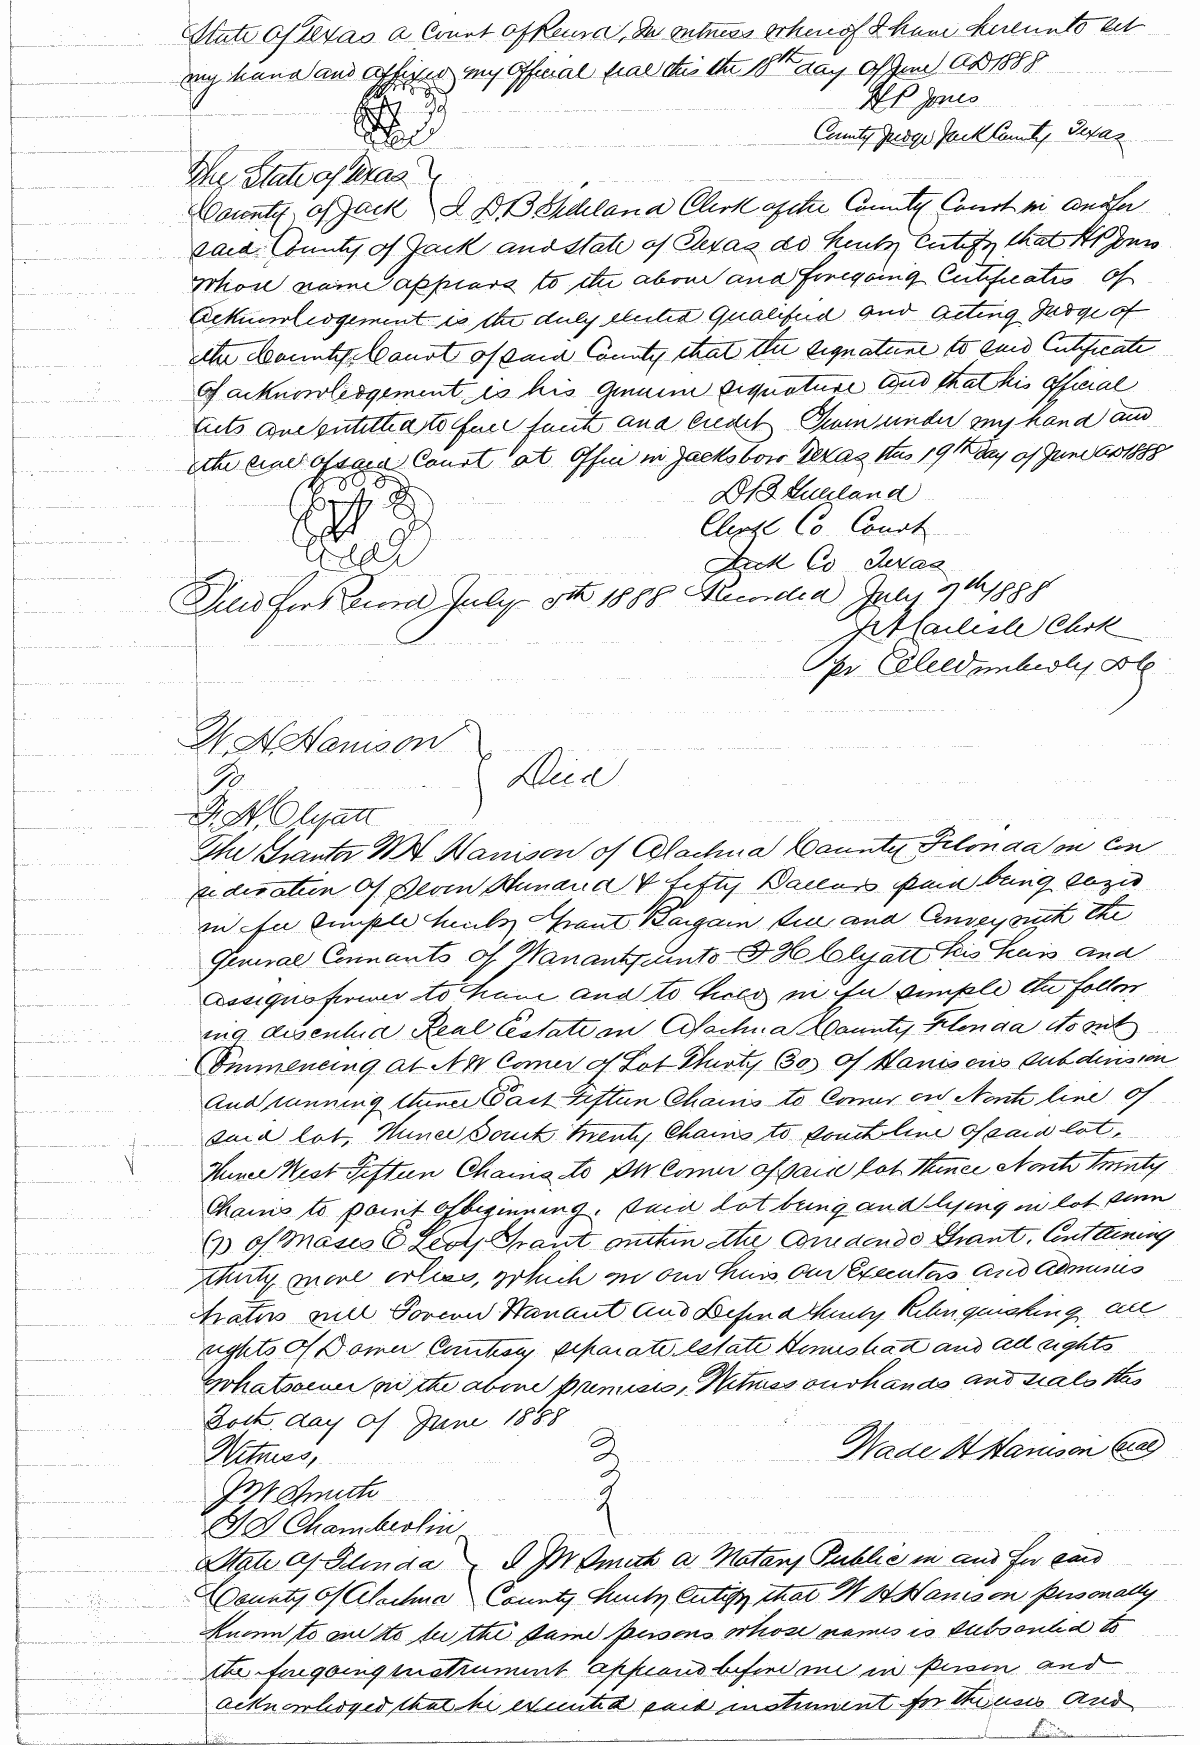 State of Texas a Court of Record, In witness whereof I have hereunto set
my hand and affixed my official seal this the 18th day of June AD 1888
H P Jones
County Judge Jack County Texas
The State of Texas
County of Jack I D B Clerk of the County Court in and for
said County of Jack and State of Texas do hereby certify that H P Jones
whose name appears to the above and foregoing Certificates of
acknowledgement is the duly elected qualified and acting Judge of
the County Court of said County that the signature to said Certificate
of acknowledgement is his genuine signature and that his official
acts are entitled to full faith and credit Given under my hand and
the seal of said Court at office in Jacksboro Texas this 19th day of June AD 1888
D B
Clerk Co Court
Seal
Jack Co Texas
Filed for Record July 5th 1888 Recorded July 9th 1888
Carlisle Clerk
pr
W. H. Harrison
To
Deed
F. H. Clyatt
The Grantor W H Harrison of Alachua County Florida in con
sideration of Seven Hundred & fifty Dollars paid being seized
in fee simple hereby Grant Bargain sell and Convey with the
General Covenants of Warranty unto F H Clyatt his heirs and
assigns forever to have and to hold in fee simple the follow
ing described Real Estate in Alachua County Florida to wit
Commencing at NW Corner of Lot Thirty (30) of Harrisons subdivision
and running thence East Fifteen Chains to Corner on North line of
said lot, thence South twenty Chains to south line of said lot,
thence West Fifteen Chains to SW Corner of said lot thence North twenty
Chains to point of beginning. said lot being and lying in lot seven
(7) of Moses E Levy Grant within the Arredondo Grant. Containing
thirty more or less, which we our heirs our Executors and adminis
trators will Forever Warrant and Defend hereby Relinquishing all
rights of Dower Courtesy separate estate Homestead and all rights
whatsoever in the above premises, Witness our hands and seals this
30th day of June 1888
Witness,
Wade H Harrison (seal)
J W Smith
Chamberlin
State of Florida I J W Smith a Notary Public in and for said
County of Alachua County hereby certify that W H Harrison personally
known to me to be the same persons whose names is subscribed to
the foregoing instrument appeared before me in person and
acknowledged that he executed said instrument for the uses and